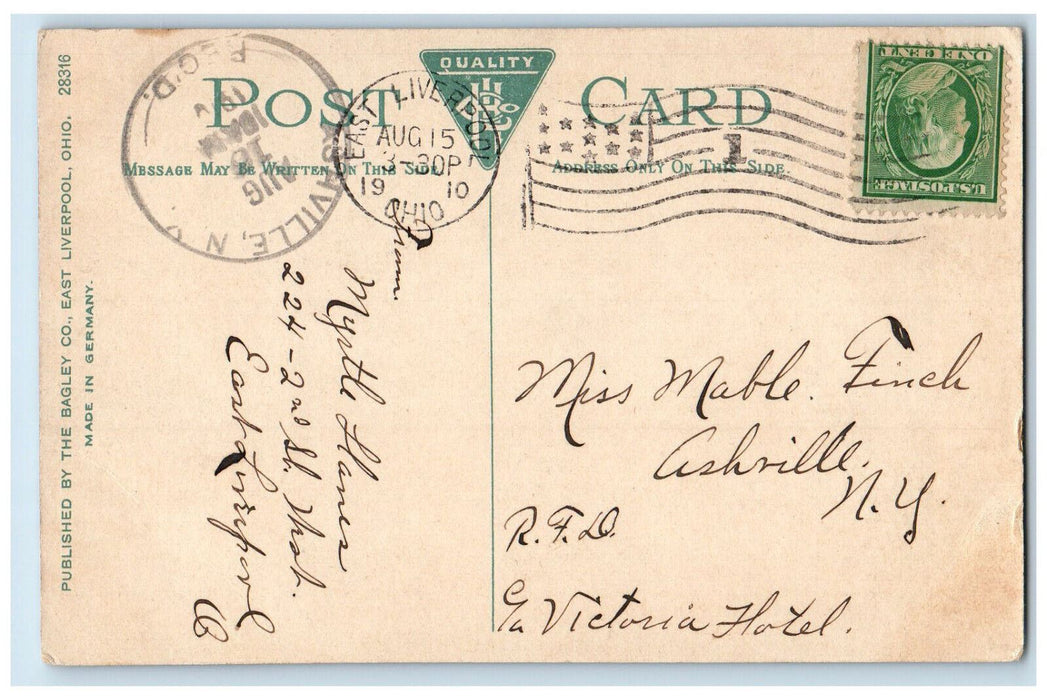 28316
PUBLISHED BY THE BAGLEY CO., EAST LIVERPOOL, OHIO.
MADE IN GERMANY.
POST CARD
QUALITY
MESSAGE MAY BE WRITTEN ON THIS SIDE
ADDRESS ONLY ON THIS SIDE.
EAST LIVERPOOL
AUG 15
3-30P
19 10
OHIO
1
REC'D.
AUG
16
VILLE, N.
ONE CENT
U.S. POSTAGE
From.
Myrtle Hanes
224-2nd St.
East Liverpool
O
Miss Mable. Finch
Ashville.
N.Y.
R.F.D.
c/o Victoria Hotel.